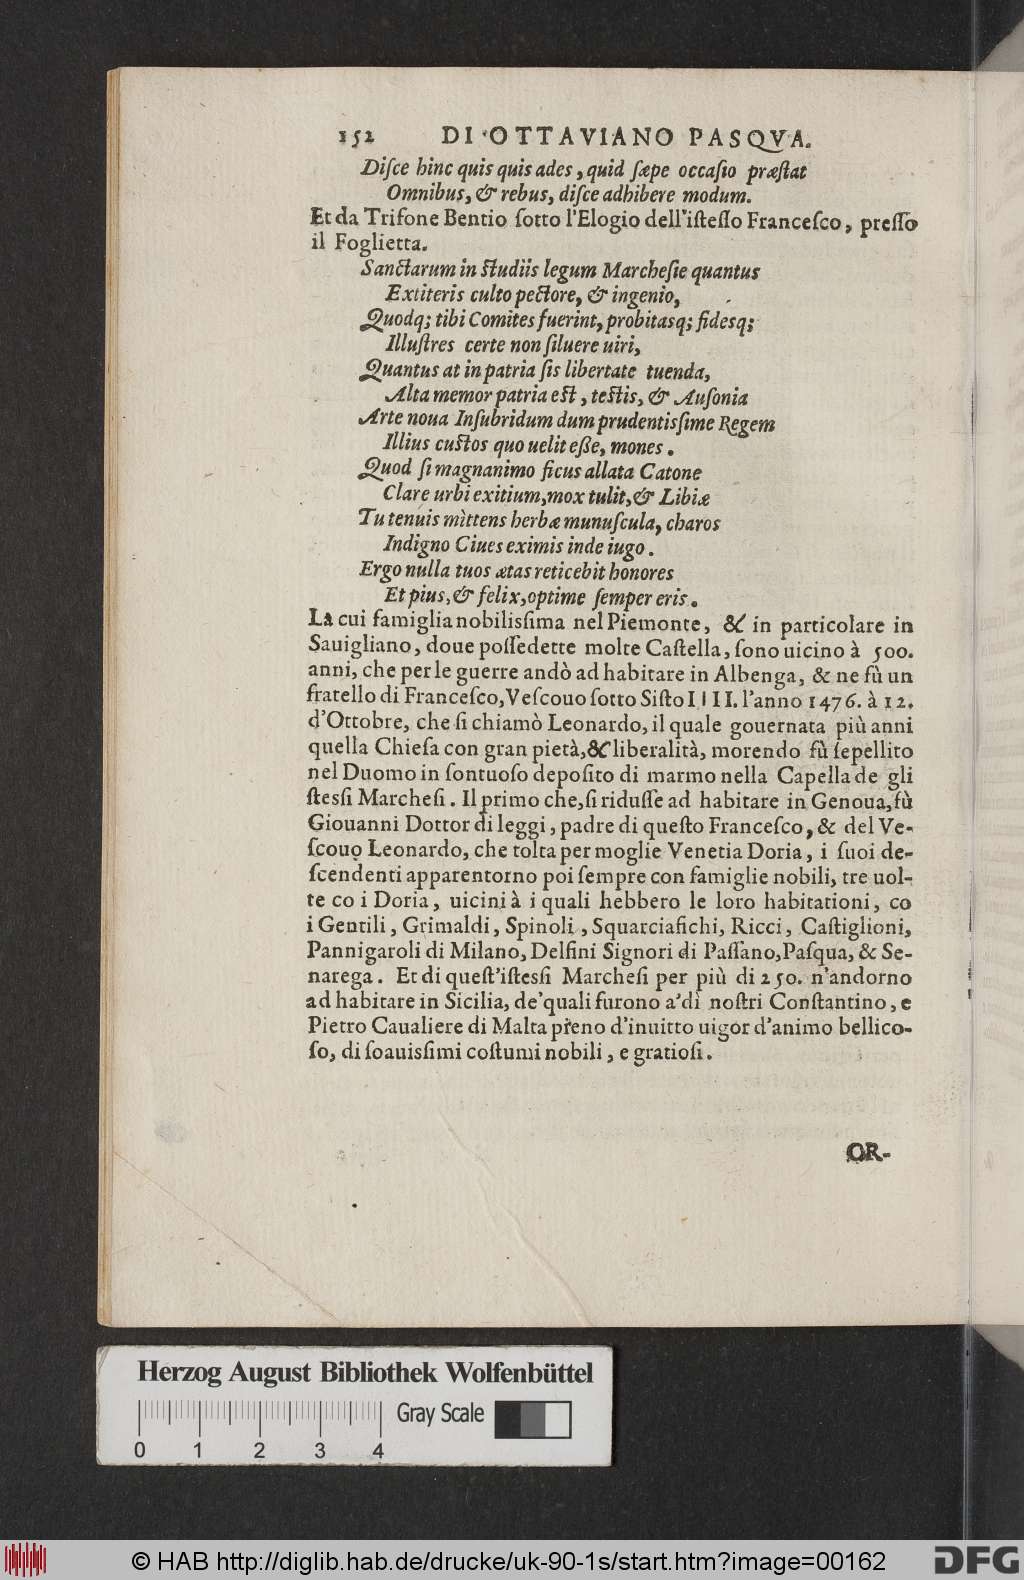 152 DI OTTAVIANO PASQVA.
Diſce hinc quis quis ades, quid ſæpe occaſio præſtat
Omnibus, & rebus, diſce adhibere modum.
Et da Trifone Bentio ſotto l'Elogio dell'iſteſſo Franceſco, preſſo
il Foglietta.
Sanctarum in ſtudiis legum Marcheſie quantus
Extiteris culto pectore, & ingenio,
Quodq; tibi Comites fuerint, probitasq; fidesq;
Illuſtres certe non ſiluere uiri,
Quantus at in patria ſis libertate tuenda,
Alta memor patria eſt, teſtis, & Auſonia
Arte noua Inſubridum dum prudentisſime Regem
Illius cuſtos quo uelit eße, mones.
Quod ſi magnanimo ficus allata Catone
Clare urbi exitium, mox tulit, & Libiæ
Tu tenuis mittens herbæ munuſcula, charos
Indigno Ciues eximis inde iugo.
Ergo nulla tuos ætas reticebit honores
Et pius, & felix, optime ſemper eris.
La cui famiglia nobilisſima nel Piemonte, & in particolare in
Sauigliano, doue poſſedette molte Caſtella, ſono uicino à 500.
anni, che per le guerre andò ad habitare in Albenga, & ne fù un
fratello di Franceſco, Veſcouo ſotto Siſto IIII. l'anno 1476. à 12.
d'Ottobre, che ſi chiamò Leonardo, il quale gouernata più anni
quella Chieſa con gran pietà, & liberalità, morendo fù ſepellito
nel Duomo in ſontuoſo depoſito di marmo nella Capella de gli
ſtesſi Marcheſi. Il primo che, ſi riduſſe ad habitare in Genoua, fù
Giouanni Dottor di leggi, padre di queſto Franceſco, & del Ve-
ſcouo Leonardo, che tolta per moglie Venetia Doria, i ſuoi de-
ſcendenti apparentorno poi ſempre con famiglie nobili, tre uol-
te co i Doria, uicini à i quali hebbero le loro habitationi, co
i Gentili, Grimaldi, Spinoli, Squarciafichi, Ricci, Caſtiglioni,
Pannigaroli di Milano, Delfini Signori di Paſſano, Paſqua, & Se-
narega. Et di queſt'iſtesſi Marcheſi per più di 250. n'andorno
ad habitare in Sicilia, de'quali furono a'dì noſtri Conſtantino, e
Pietro Caualiere di Malta pieno d'inuitto uigor d'animo bellico-
ſo, di ſoauisſimi coſtumi nobili, e gratioſi.
OR-
Herzog August Bibliothek Wolfenbüttel
Gray Scale
0 1 2 3 4
© HAB http://diglib.hab.de/drucke/uk-90-1s/start.htm?image=00162
DFG